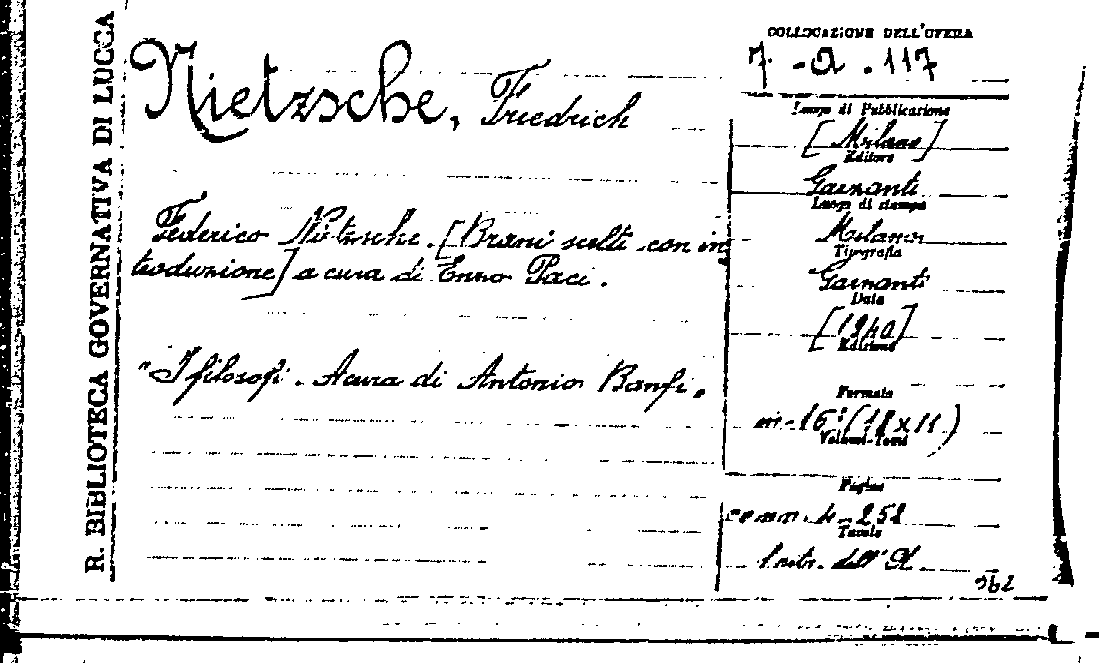 R. BIBLIOTECA GOVERNATIVA DI LUCCA
Nietzsche, Friedrich
Federico Nietzsche. [Brani scelti con in
troduzione] a cura di Enzo Paci.
"I filosofi. A cura di Antonio Banfi.
COLLOCAZIONE DELL'OPERA
7 - a . 117
Luogo di Pubblicazione
[Milano]
Editore
Garzanti
Luogo di stampa
Milano
Tipografia
Garzanti
Data
[1940]
Edizione
Formato
in-16° (18x11)
Volumi-Tomi
Pagine
4-252
Tavole
1 ritr. dell'A.